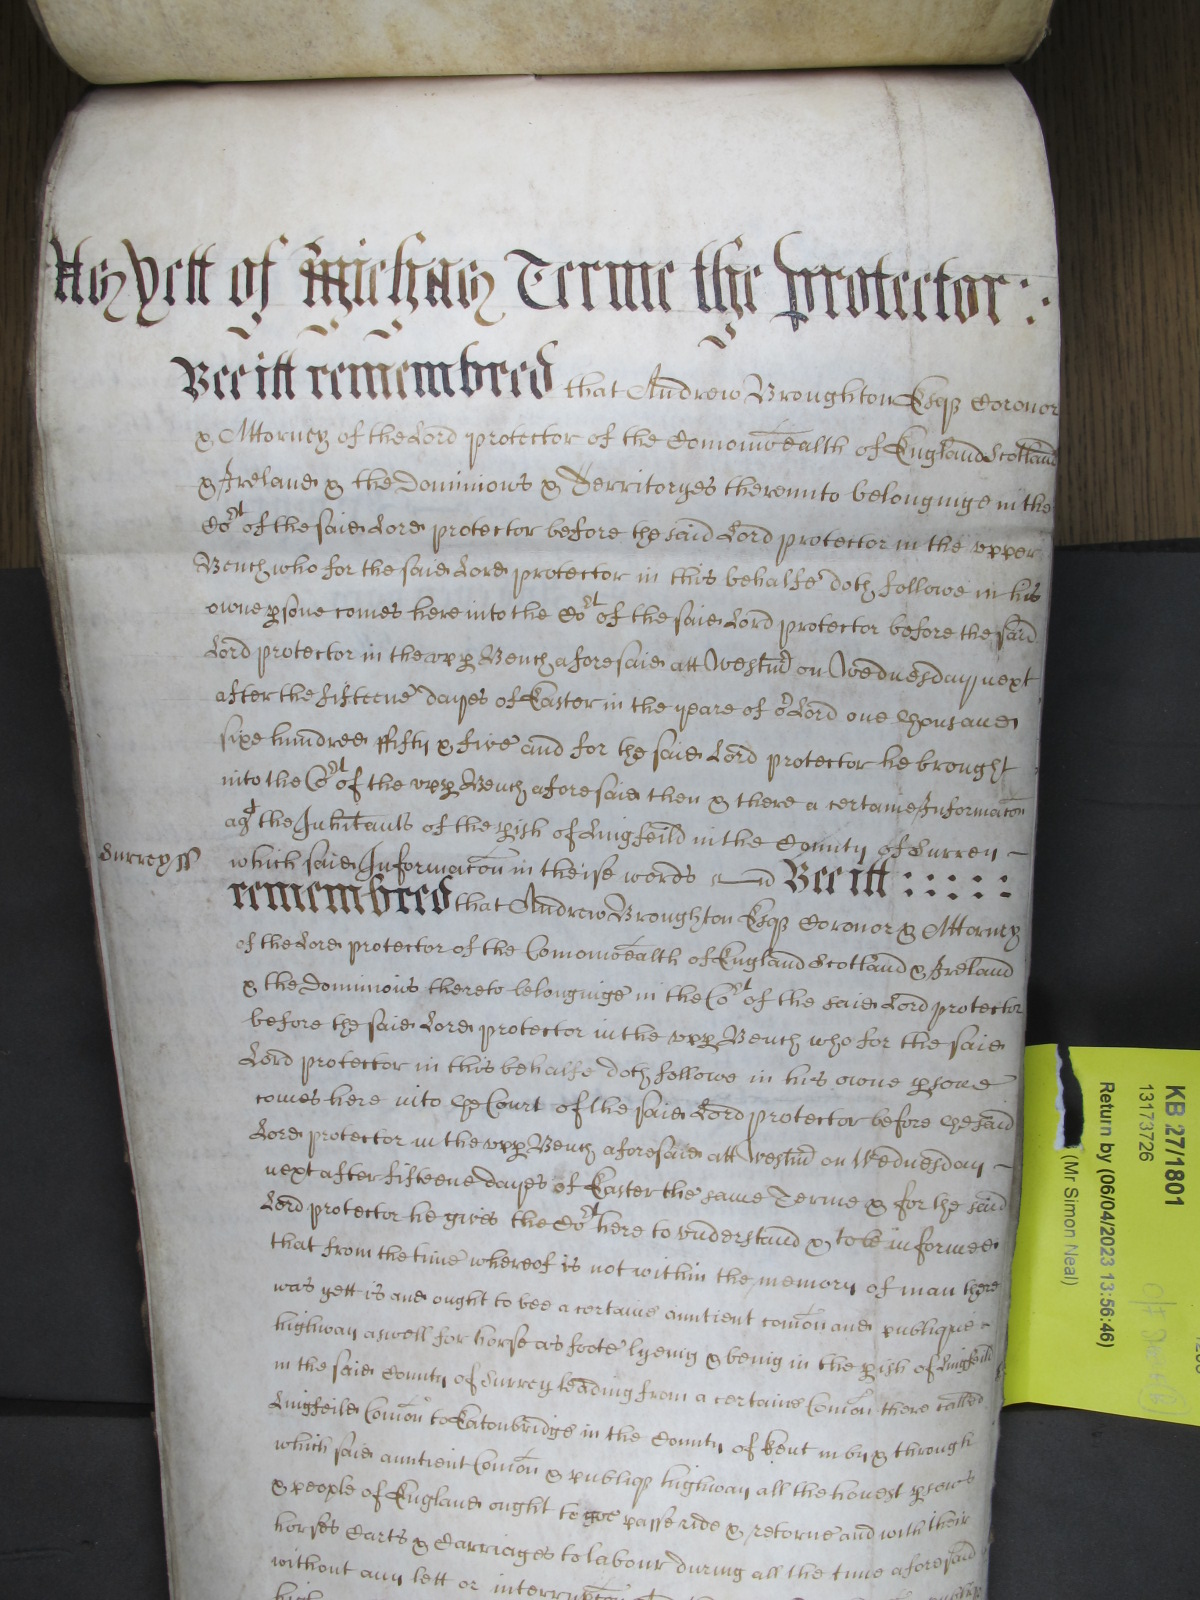 As yett of Michas Terme the Protector :·
Bee itt remembred that Andrew Broughton Esqr Coronor
& Attorney of the Lord protector of the Comonwealth of England Scotland
& Ireland & the Dominions & Territoryes thereunto belonginge in the
Cort of the said Lord protector before the said Lord protector in the upper
Bench who for the said Lord protector in this behalfe doth followe in his
owne psone comes here into the Cort of the said Lord protector before the said
Lord protector in the upp Bench aforesaid att Westm on Wednesday next
after the fifteene dayes of Easter in the yeare of or Lord one thousand
sixe hundred fifty & five and for the said Lord protector he brought
into the Cort of the upp Bench aforesaid then & there a certaine Informacon
agt the Inhitants of the pish of Lingfeild in the County of Surrey
Surrey ss which said Informacon in theise words Bee itt : : : : :
remembred that Andrew Broughton Esqr Coronor & Attorney
of the Lord protector of the Comonwealth of England Scotland & Ireland
& the Dominions thereto belonginge in the Cort of the said Lord protector
before the said Lord protector in the upp Bench who for the said
Lord protector in this behalfe doth followe in his owne psone
comes here into the Court of the said Lord protector before the said
Lord protector in the upp Bench aforesaid att Westm on Wednesday
next after fifteene dayes of Easter the same Terme & for the said
Lord protector he gives the Cort here to understand & to be informed
that from the time whereof is not within the memory of man there
was yett is and ought to bee a certaine auntient comon and publique
highway aswell for horse as foote lyeing & being in the pish of Lingfeild
in the said County of Surrey leading from a certaine Comon there called
Lingfeild Comon to Eatonbridge in the County of Kent in by & through
which said auntient Comon & publiq highway all the honest psons
& people of England ought to goe passe ride & retorne and with their
horses Carts & Carriages to labour during all the time aforesaid
without any lett or interrupcon
KB 27/1801
13173726
Return by (06/04/2023 13:56:46)
(Mr Simon Neal)